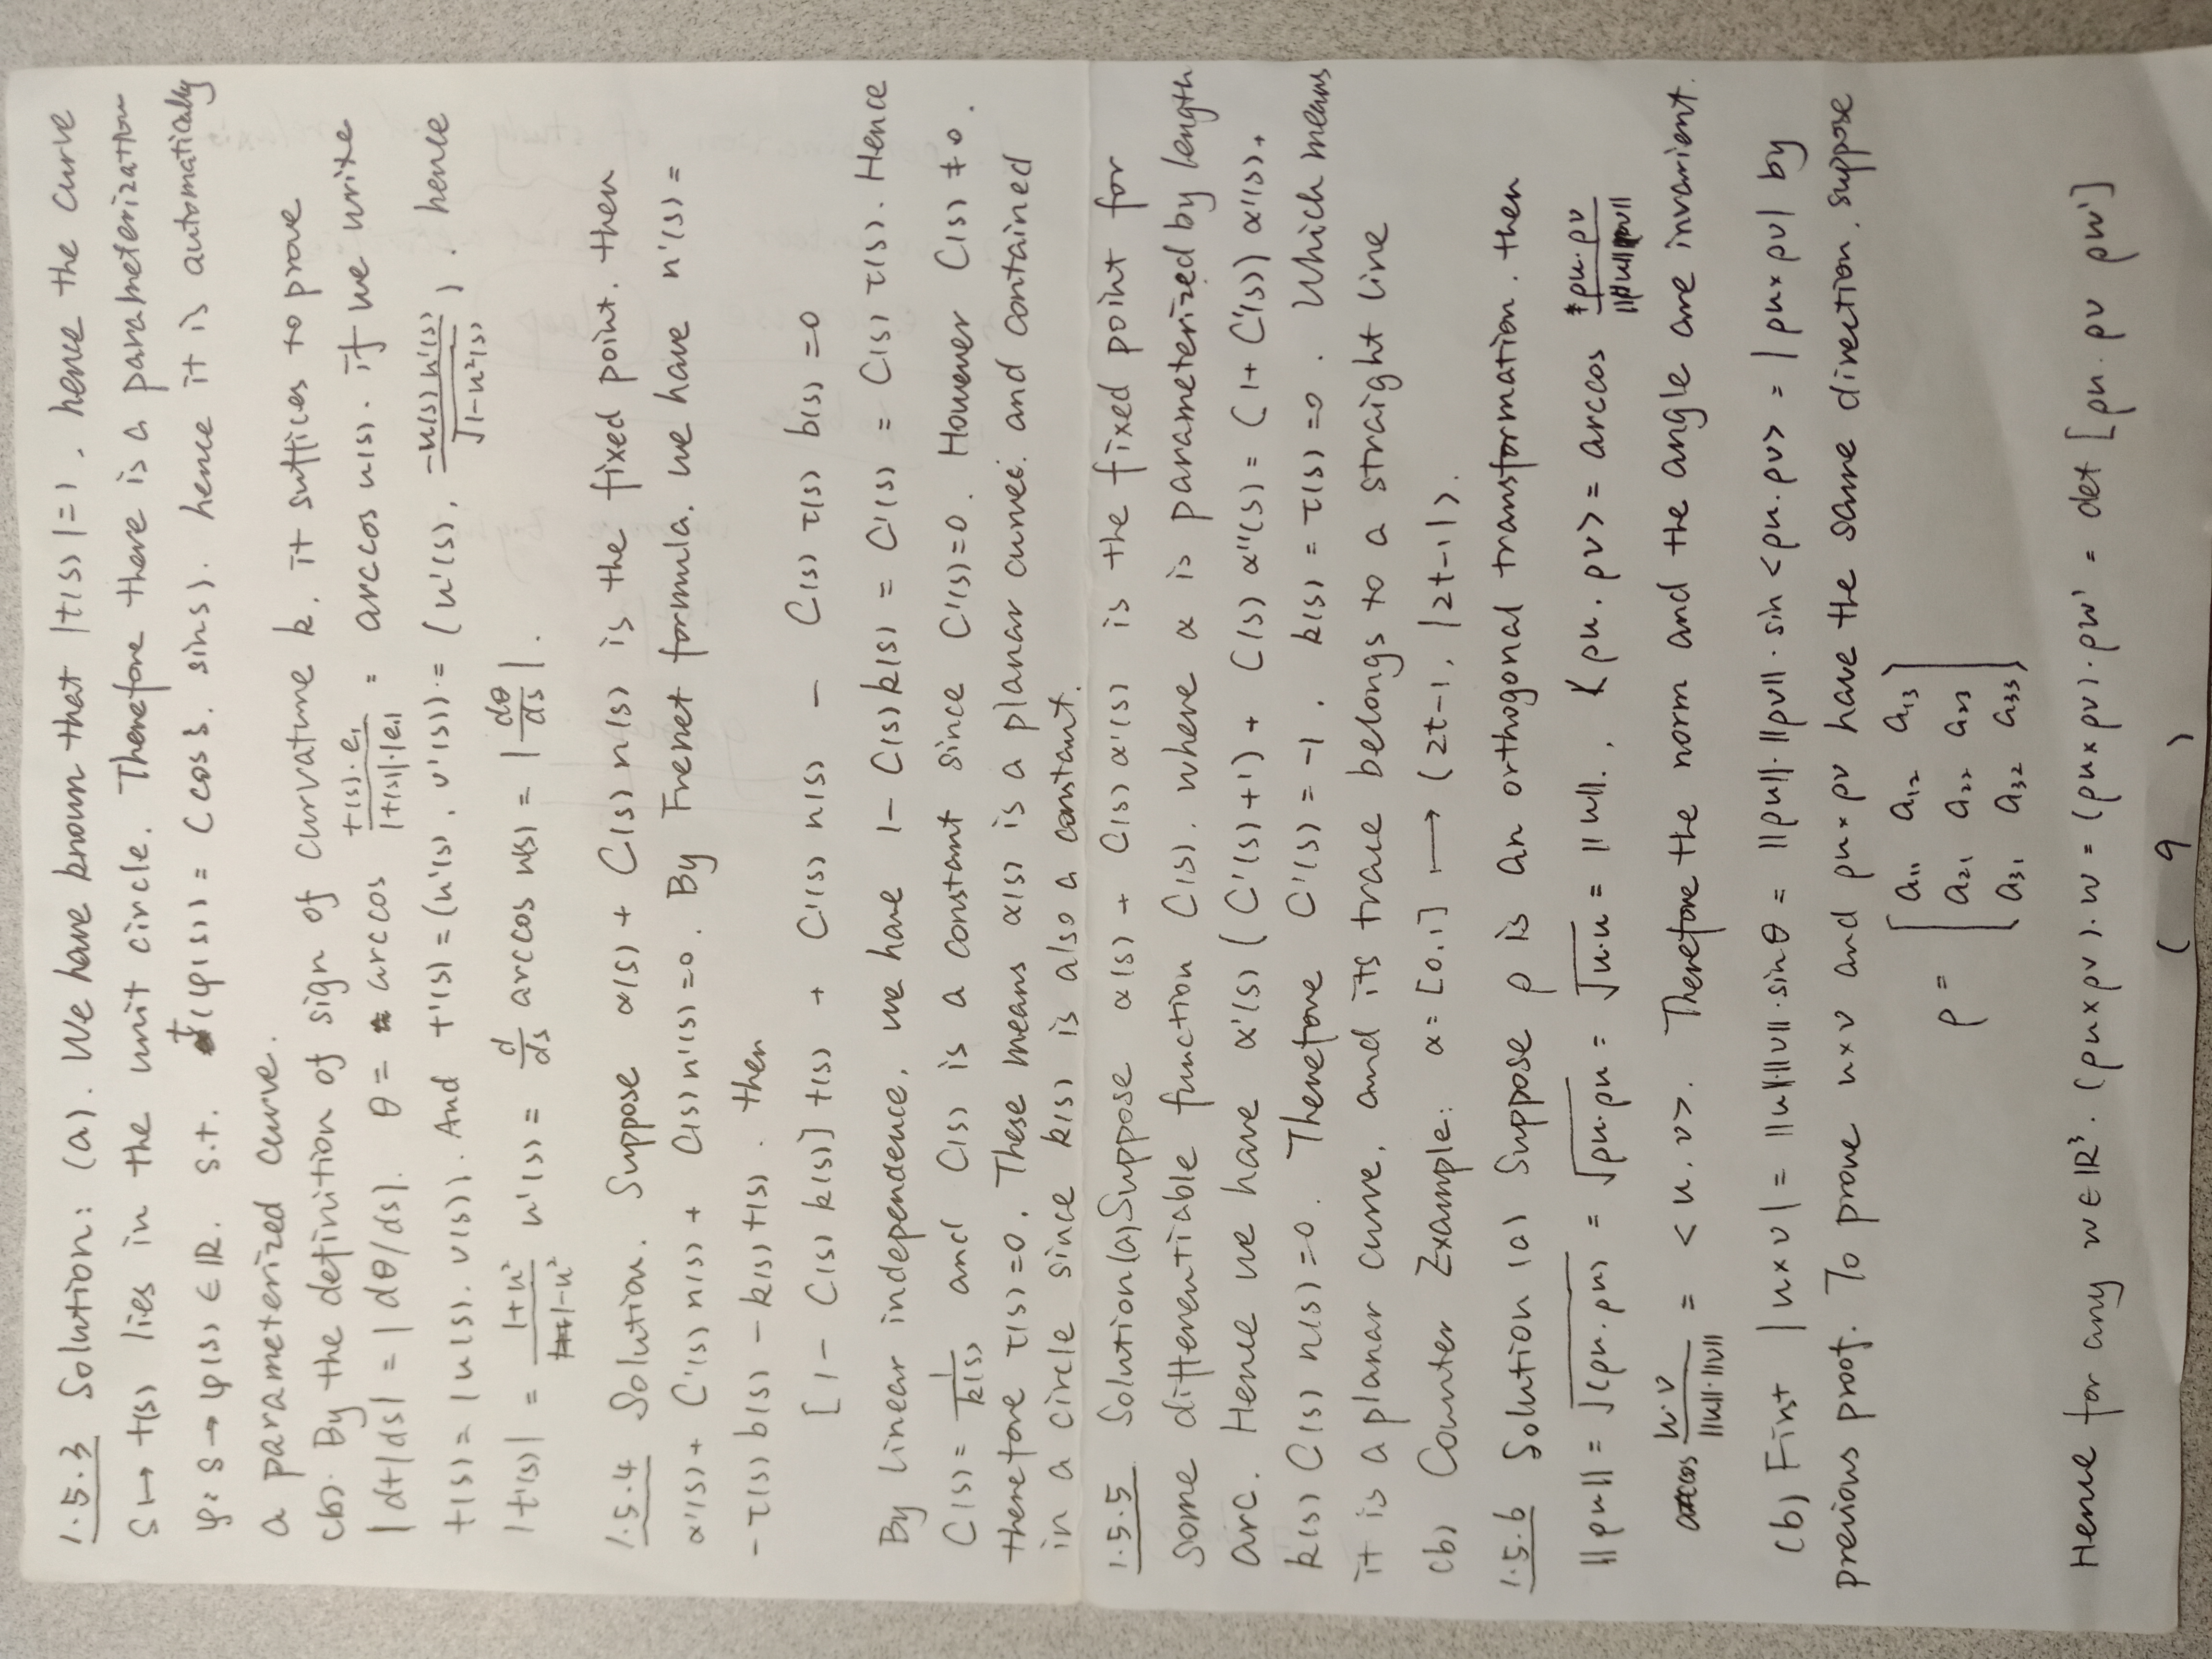 1.5.3 Solution: (a). We have known that |t(s)|=1, hence the curve
s↦t(s) lies in the unit circle. Therefore there is a parameterization
φ: s→φ(s)∈ℝ. s.t. t(φ(s)) = (cos s, sin s). hence it is automatically
a parameterized curve.
(b). By the definition of sign of curvature k, it suffices to prove
|dt/ds| = |dθ/ds|. θ = arccos \frac{t(s)·e₁}{|t(s)|·|e₁|} = arccos u(s). if we write
t(s) = (u(s), v(s)). And t'(s) = (u'(s), v'(s)) = (u'(s), \frac{-u(s)u'(s)}{\sqrt{1-u²(s)}}), hence
|t'(s)| = \frac{1+u²}{1-u²} u'(s) = \frac{d}{ds} arccos u(s) = |\frac{dθ}{ds}|.
1.5.4 Solution. Suppose α(s) + C(s) n(s) is the fixed point, then
α'(s) + C'(s) n(s) + C(s) n'(s) = 0. By Frenet formula, we have n'(s) =
-τ(s) b(s) - k(s) t(s). then
[1 - C(s) k(s)] t(s) + C'(s) n(s) - C(s) τ(s) b(s) = 0
By linear independence, we have 1 - C(s) k(s) = C'(s) = C(s) τ(s). Hence
C(s) = \frac{1}{k(s)} and C(s) is a constant since C'(s)=0. However C(s) ≠ 0,
therefore τ(s)=0. These means α(s) is a planar curve, and contained
in a circle since k(s) is also a constant.
1.5.5 Solution(a) Suppose α(s) + C(s) α'(s) is the fixed point for
some differentiable function C(s), where α is parameterized by length
arc. Hence we have α'(s) (C'(s)+1) + C(s) α''(s) = (1+C'(s)) α'(s) +
k(s) C(s) n(s) = 0. Therefore C'(s) = -1, k(s) = τ(s) = 0. Which means
it is a planar curve, and its trace belongs to a straight line
(b) Counter Example: α: [0,1] ↦ (2t-1, |2t-1|).
1.5.6 Solution (a) Suppose ρ is an orthogonal transformation, then
||ρu|| = \sqrt{(ρu, ρu)} = \sqrt{ρu·ρu} = \sqrt{u·u} = ||u||., <ρu, ρv> = arccos \frac{ρu·ρv}{||ρu|| ||ρv||}
arccos \frac{u·v}{||u||·||v||} = <u, v>. Therefore the norm and the angle are invarient.
(b) First |u×v| = ||u||·||v||·sinθ = ||ρu||·||ρv||·sin<ρu, ρv> = |ρu×ρv| by
previous proof. To prove u×v and ρu×ρv have the same direction, suppose
a₁₁ a₁₂ a₁₃
ρ = a₂₁ a₂₂ a₂₃
a₃₁ a₃₂ a₃₃
Hence for any w∈ℝ³. (ρu×ρv)·w = (ρu×ρv)·ρw' = det [ρu, ρv ρw']
( 9 )